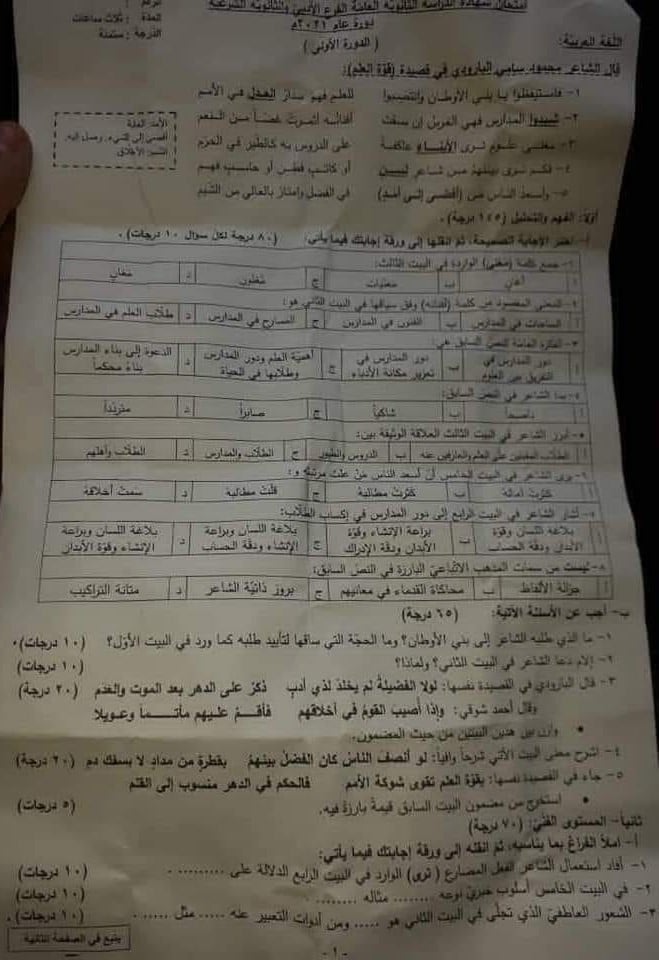 امتحان شهادة الدراسة الثانوية العامة الفرع الأدبي والثانوية الشرعية
دورة عام ٢٠٢١م
(الدورة الأولى)
المدة : ثلاث ساعات
الدرجة : ستمئة
اللغة العربية:
قال الشاعر محمود سامي البارودي في قصيدة (قوّة العلم):
١- فاستيقظوا يا بني الأوطان وانتصبوا للعلم فهو مدار العدل في الأمم
٢- شيدوا المدارس فهي الغرس إن بسقت أفنانه أثمرت غضاً من النعم
٣- مغنى علوم ترى الأبناء عاكفة على الدروس به كالطير في الحرم
٤- فكم ترى بينهم من شاعر لسن أو كاتب فطن أو حاسب فهم
٥- وأسعد الناس من (أفضى إلى أمد) في الفضل وامتاز بالعالي من الشيم
الأمد: الغاية
أفضى إلى الشيء: وصل إليه
الشيم: الأخلاق
أولاً: الفهم والتحليل (١٤٥ درجة).
أ- اختر الإجابة الصحيحة، ثم انقلها إلى ورقة إجابتك فيما يأتي: (٨٠ درجة لكل سؤال ١٠ درجات).
١- جمع كلمة (مغنى) الواردة في البيت الثالث:
أ أغان ب مغنيات ج مغنون د مغانٍ
٢- المعنى المقصود من كلمة (أفنانه) وفق سياقها في البيت الثاني هو:
أ الساحات في المدارس ب الفنون في المدارس ج المسارح في المدارس د طلّاب العلم في المدارس
٣- الفكرة العامة للنص السابق هي:
أ دور المدارس في التفريق بين العلوم ب دور المدارس في تعزيز مكانة الأدباء ج أهميّة العلم ودور المدارس وطلّابها في الحياة د الدعوة إلى بناء المدارس بناءً محكماً
٤- بدا الشاعر في النص السابق:
أ ناصحاً ب شاكياً ج صابراً د متردّداً
٥- أبرز الشاعر في البيت الثالث العلاقة الوثيقة بين:
أ الطلاب المقبلين على العلم والعازفين عنه ب الدروس والطيور ج الطلّاب والمدارس د الطلّاب وأهلهم
٦- يرى الشاعر في البيت الخامس أنّ أسعد الناس مَنْ علت مرتبته و:
أ كثرت آماله ب كثرت مطالبه ج قلّت مطالبه د سمت أخلاقه
٧- أشار الشاعر في البيت الرابع إلى دور المدارس في إكساب الطلّاب:
أ بلاغة اللسان وقوّة الأبدان ودقّة الحساب ب براعة الإنشاء وقوّة الأبدان ودقة الإدراك ج بلاغة اللسان وبراعة الإنشاء ودقّة الحساب د بلاغة اللسان وبراعة الإنشاء وقوّة الأبدان
٨- ليست من سمات المذهب الاتّباعيّ البارزة في النصّ السابق:
أ جزالة الألفاظ ب محاكاة القدماء في معانيهم ج بروز ذاتيّة الشاعر د متانة التراكيب
ب- أجب عن الأسئلة الآتية: (٦٥ درجة)
١- ما الذي طلبه الشاعر إلى بني الأوطان؟ وما الحجّة التي ساقها لتأييد طلبه كما ورد في البيت الأوّل؟ (١٠ درجات).
٢- إلام دعا الشاعر في البيت الثاني؟ ولماذا؟ (١٠ درجات)
٣- قال البارودي في القصيدة نفسها: لولا الفضيلة لم يخلد لذي أدبٍ ذكرٌ على الدهر بعد الموت والعدم (٢٠ درجة)
وقال أحمد شوقي: وإذا أُصيب القومُ في أخلاقهم فأقمْ عليهم مأتماً وعويلا
• وازن بين هذين البيتين من حيث المضمون.
٤- اشرح معنى البيت الآتي شرحاً وافياً: لو أنصف الناسُ كان الفضلُ بينهمُ بقطرةٍ من مدادٍ لا بسفك دمِ (٢٠ درجة)
٥- جاء في القصيدة نفسها: بقوّة العلم تقوى شوكة الأمم فالحكم في الدهر منسوب إلى القلم
• استخرج من مضمون البيت السابق قيمةً بارزة فيه. (٥ درجات)
ثانياً- المستوى الفنيّ: (٧٠ درجة)
أ- املأ الفراغ بما يناسبه، ثم انقله إلى ورقة إجابتك فيما يأتي:
١- أفاد استعمال الشاعر الفعل المضارع (ترى) الوارد في البيت الرابع الدلالة على ......... . (١٠ درجات)
٢- في البيت الخامس أسلوب خبريّ نوعه ........ مثاله ........ . (١٠ درجات)
٣- الشعور العاطفيّ الذي تجلّى في البيت الثاني هو ..... ومن أدوات التعبير عنه ..... مثل ..... . (١٠ درجات).
يتبع في الصفحة الثانية
- ١ -